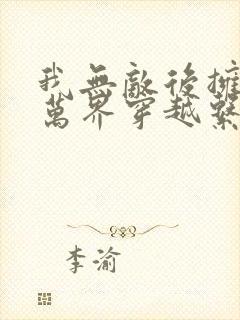 我無敵後擁
萬界穿越繫
李渝